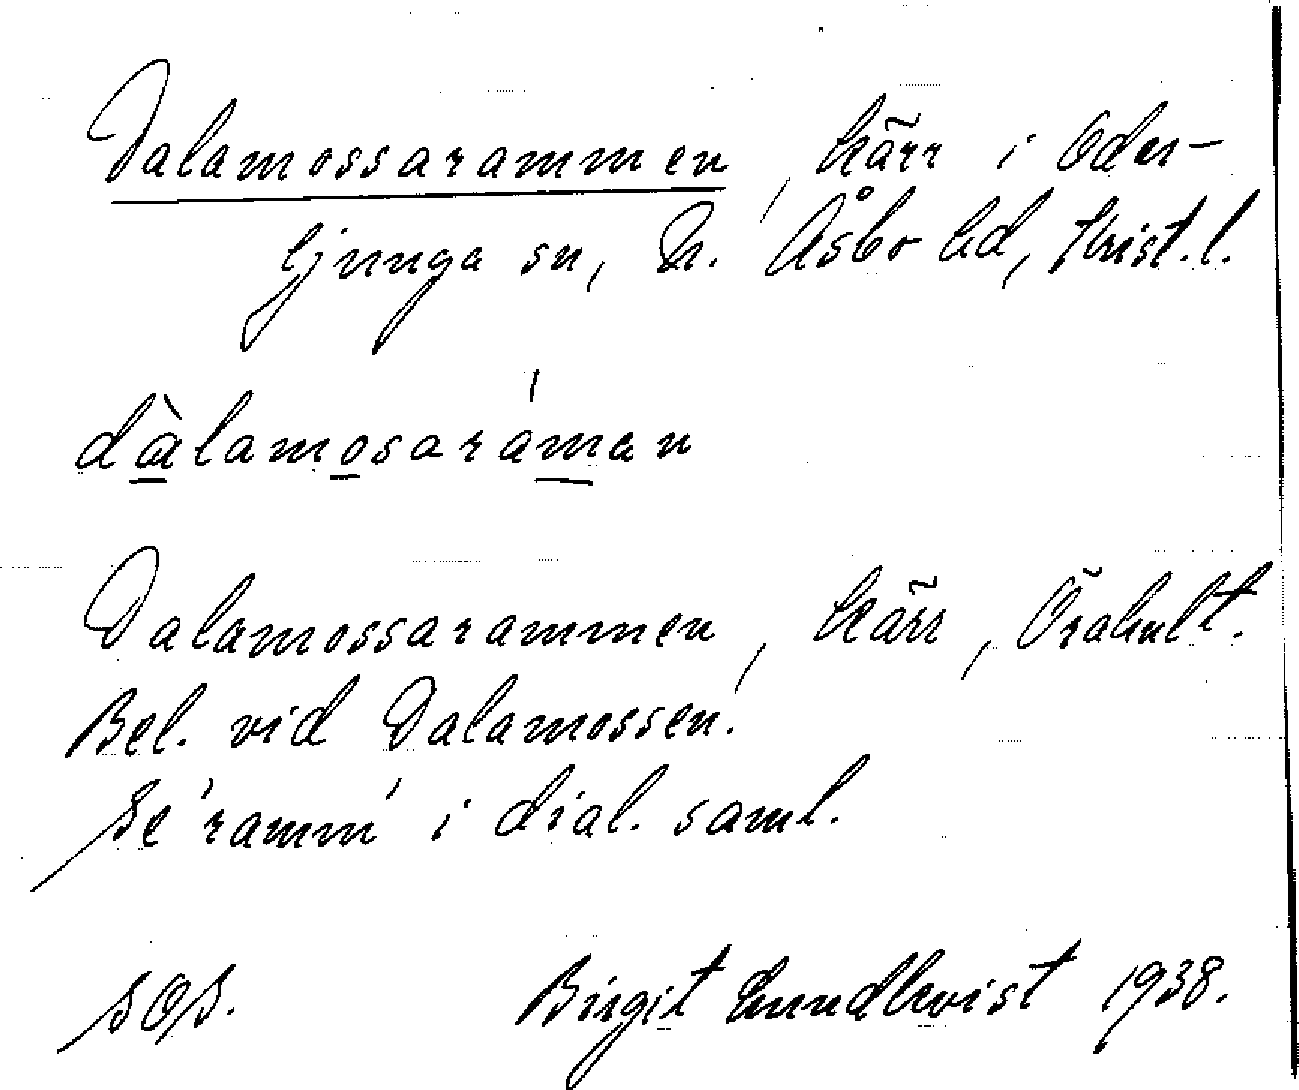 Dalamossarammen, kärr i Oder-
ljunga sn, N. Åsbo hd, Krist. l.
dàlamosaráman
Dalamossarammen, kärr, Örahult.
Bel. vid Dalamossen.
Se 'ramm' i dial. saml.
SOS. Birgit Lundkvist 1938.